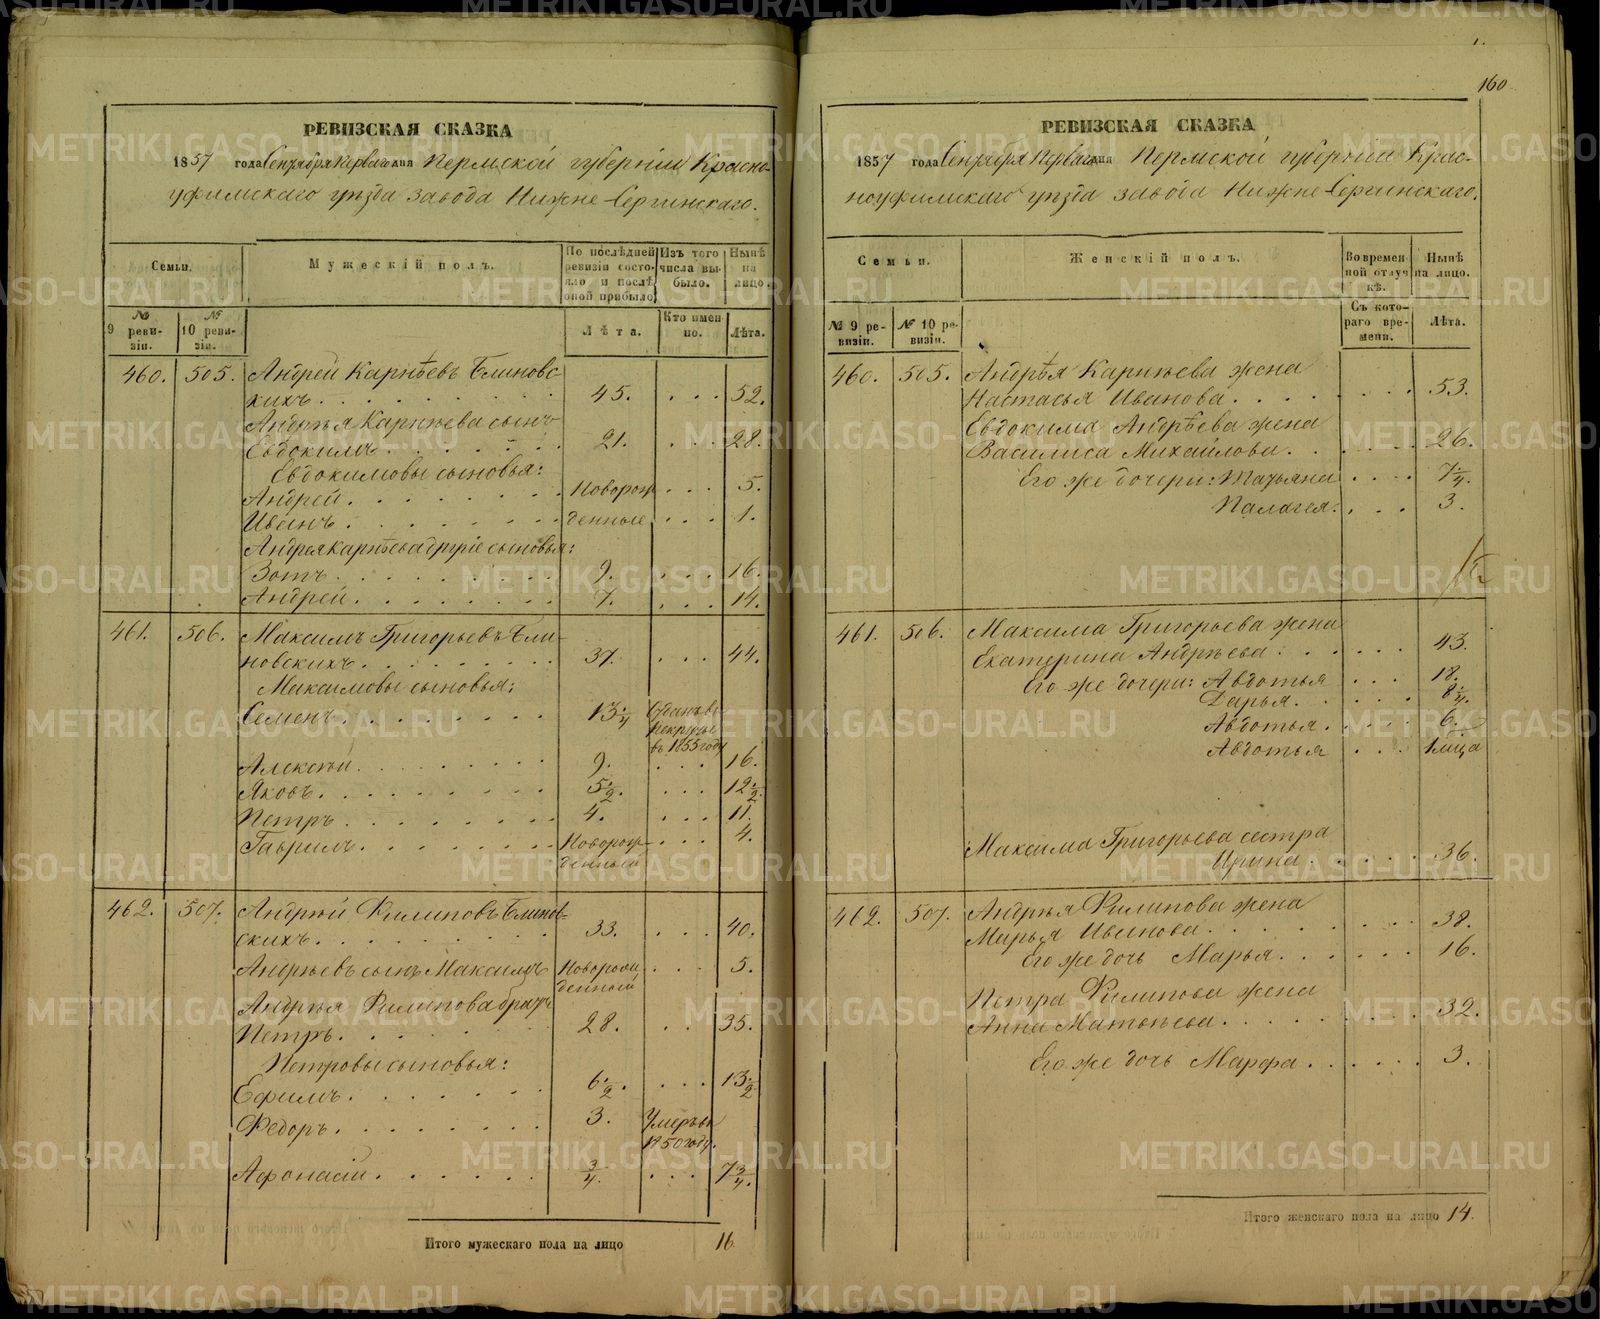 160
РЕВИЗСКАЯ СКАЗКА
1857 года Сентября Первого дня Пермской губерніи Красно-
уфимскаго уѣзда завода Нижне-Сергинскаго.
Семьи.
Мужескій полъ.
По послѣдней ревизіи состояло и послѣ оной прибыло
Изъ того числа выбыло.
Нынѣ на лицо.
№ 9 ревизіи.
№ 10 ревизіи.
Лѣта.
Кто именно.
Лѣта.
460. 505. Андрей Карпѣевъ Блиновс-
кихъ. 45. 52.
Андрѣя Карпѣева сынъ
Евдокимъ. 21. 28.
Евдокимовы сыновья:
Андрей. Новорож- 5.
Иванъ. денные 1.
Андрея Карпѣева другіе сыновья:
Зотъ. 9. 16.
Андрей. 7. 14.
461. 506. Максимъ Григорьевъ Бли-
новскихъ. 37. 44.
Максимовы сыновья:
Семенъ. 13 1/4 Отданъ въ
рекруты
въ 1855 году
Алексѣй. 9. 16.
Яковъ. 5 1/2. 12 1/2.
Петръ. 4. 11.
Гаврилъ. Новорож- 4.
денный
462. 507. Андрѣй Филиповъ Блинов-
скихъ. 33. 40.
Андрѣевъ сынъ Максимъ Новорож 5.
денный
Андрѣя Филипова братъ
Петръ. 28. 35.
Петровы сыновья:
Ефимъ. 6 1/2. 13 1/2
Федоръ. 3. Умеръ въ
1850 году.
Афонасій. 3/4. 7 3/4.
Итого мужескаго пола на лицо 16.
РЕВИЗСКАЯ СКАЗКА
1857 года Сентября Первого дня Пермской губерніи Крас-
ноуфимскаго уѣзда завода Нижне-Сергинскаго.
Семьи.
Женскій полъ.
Во временной отлучкѣ.
Нынѣ на лицо.
№ 9 ревизіи.
№ 10 ревизіи.
Съ котораго времени.
Лѣта.
460. 505. Андрѣя Карпѣева жена
Настасья Иванова. 53.
Евдокима Андрѣева жена
Василиса Михайлова. 26.
Его же дочери: Татьяна 7 1/4.
Палагея. 3.
461. 506. Максима Григорьева жена
Екатерина Андрѣева. 43.
Его же дочери: Авдотья 18.
Дарья. 8 1/4.
Авдотья. 6.
Авдотья 1 мѣца
Максима Григорьева сестра
Ирина. 36.
462. 507. Андрѣя Филипова жена
Марья Иванова. 38.
Его же дочь Марья. 16.
Петра Филипова жена
Анна Матвѣева. 32.
Его же дочь Марфа. 3.
Итого женскаго пола на лицо 14.
METRIKI.GASO-URAL.RU